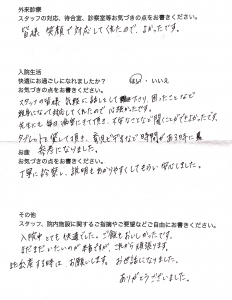 外来診療
スタッフの対応、待合室、診察室等お気づきの点をお書きください。
皆様 笑顔で対応してくれたので、よかったです。
入院生活
快適にお過ごしになれましたか? はい・いいえ
お気づきの点をお書きください。
スタッフの皆様 気軽に話をして下さり、困ったことなど
親身になって対応してくれたので心強かったです。
先生にも毎日 来ていただき、不安なことなど聞くことができてよかった。
タブレットも貸して頂き、育児の不安など 時間がある時に見
参考になりました。
お産
お気づきの点をお書きください。
丁寧に診察し、説明もわかりやすくしてもらい 安心しました。
その他
スタッフ、院内施設に関するご指摘やご要望などご自由にお書きください。
入院中とても快適でした。ご飯もおいしかったです。
まだまだいたいのが本音ですが、これから頑張ります。
出産する時は、お願いします。お世話になりました。
ありがとうございました。